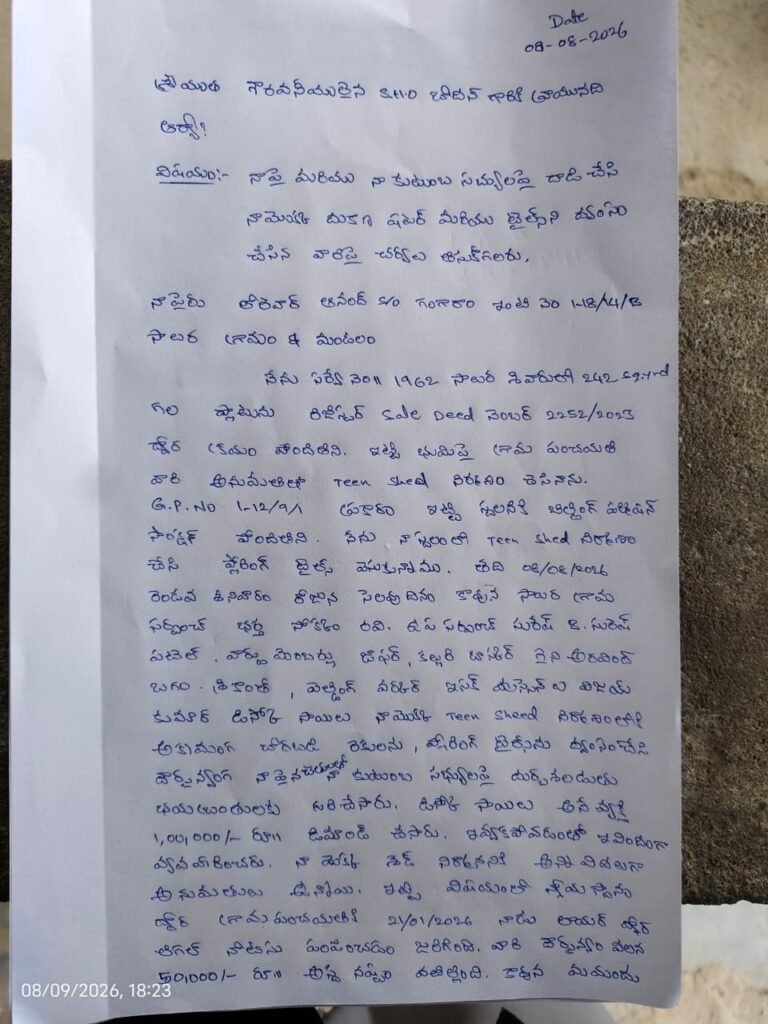 Date
08-08-2026
శ్రీయుత గౌరవనీయులైన S.H.O బోధన్ గారికి వ్రాయునది
ఆర్యా!
విషయం:- నాపై మరియు నా కుటుంబ సభ్యులపై దాడి చేసి
నామొక్క దుకాణ షటర్ మరియు టైల్స్‌ని ద్వంసం
చేసిన వారిపై చర్యలు తీసుకోగలరు.
నాపేరు ఆనంద్ S/o గంగారాం ఇంటి నెం 1-18/4/B
సాలుర గ్రామం & మండలం
నేను సర్వే నెం॥ 1962 సాలుర శివారులో 242 Sq.Yrd
గల ప్లాటును రిజిస్టర్ Sale Deed నెంబర్ 2252/2023
ద్వారా క్రయం పొందితిని. ఇట్టి భూమిపై గ్రామ పంచయతి
వారి అనుమతితో Teen Shed నిర్మాణం చేసినాను.
G.P.NO 1-12/9/1 ప్రకారం ఇట్టి స్థలానికి బిల్డింగ్ పర్మిషన్
పొందితిని. నేను నా స్థలంలో Teen Shed నిర్మాణం
చేసి ఫ్లోరింగ్ టైల్స్ వేసుకున్నాము. తేది 08/08/2026
రెండవ శనివారం రోజున సెలవు దినం కావున సాలుర గ్రామ
సర్పంచ్ భర్త రవి. ఉప సర్పంచ్ సురేష్ B. సురేష్
పటేల్. వార్డు మెంబర్లు అరవింద్
శ్రీకాంత్, వెల్డింగ్ వర్కర్ విజయ్
కుమార్ సాయిలు నామొక్క Teen Sheed నిర్మాణంలోకి
అక్రమంగ చొరబడి రేకులను, ఫ్లోరింగ్ టైల్స్‌ను ద్వంసంచేసి
దౌర్జన్యంగ నా పైన కుటుంబ సభ్యులపై
గురి చేసారు. సాయిలు అనే వ్యక్తి
1,00,000/- రూ॥ డిమాండ్ చేసారు. ఇవ్వకపోవడంతో ఈవిందంగా
వ్యవహరించారు. నా మొక్క షెడ్ నిర్మాణానికి అన్ని విదాలుగా
అనుమతులు ఉన్నాయి. ఇట్టి విషయంలో
ద్వార గ్రామ పంచయతికి 21/01/2026 నాడు లాయర్ ద్వార
లీగల్ నోటీసు పంపించడం జరిగింది. వారి దౌర్జన్యం వలన
50,000/- రూ॥ ఆస్తి నష్టం వాటిల్లింది. కావున
08/09/2026, 18:23